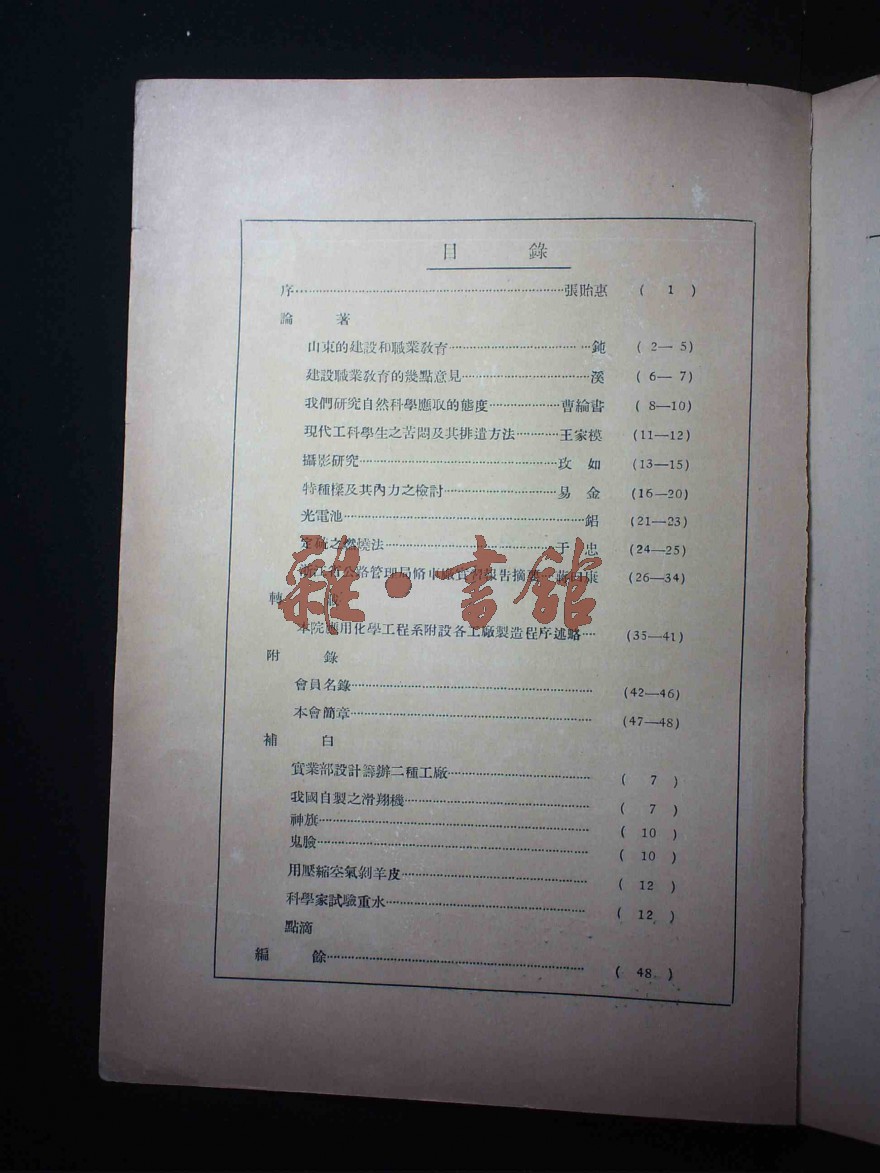 目 錄
序……張貽惠 ( 1 )
論 著
山東的建設和職業教育……鈍 ( 2— 5)
建設職業教育的幾點意見……溪 ( 6— 7)
我們研究自然科學應取的態度……曹綸書 ( 8—10)
現代工科學生之苦悶及其排遣方法……王家模 (11—12)
攝影研究……玫 如 (13—15)
特種樑及其內力之檢討……易 金 (16—20)
光電池……鋁 (21—23)
定 之燃燒法……于 忠 (24—25)
浙江省公路管理局修車廠實習報告摘要… (26—34)
轉
本院應用化學工程系附設各工廠製造程序述略… (35—41)
附 錄
會員名錄…… (42—46)
本會簡章…… (47—48)
補 白
實業部設計籌辦二種工廠…… ( 7 )
我國自製之滑翔機…… ( 7 )
神旗…… ( 10 )
鬼臉…… ( 10 )
用壓縮空氣剝羊皮…… ( 12 )
科學家試驗重水…… ( 12 )
點滴
編 餘…… ( 48 )
雜·書館